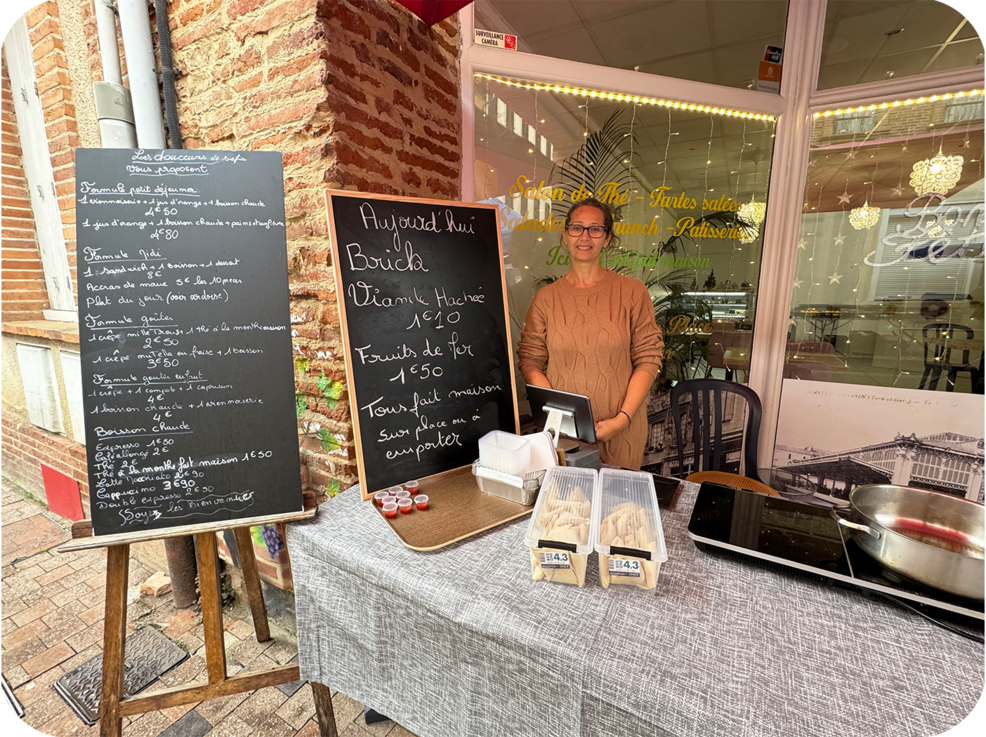 Les douceurs de safia
vous proposent
Formule petit déjeuner
1 viennoiserie + 1 jus d'orange + 1 boisson chaude
4€50
1 jus d'orange + 1 boisson chaude + pain
4€80
Formule Midi
1 sandwich + 1 boisson + 1 dessert
8€
Accras de morue 5€ les 10 pièces
Plat du jour (voir ardoise)
Formule goûter
1 crêpe mille trous + 1 thé à la menthe maison
2€50
1 crêpe nutella ou + 1 boisson
3€50
Formule goûter enfant
1 crêpe + 1 compote + 1 caprisun
4€
1 boisson chaude + 1 viennoiserie
4€
Boisson chaude
Expresso 1€50
Café allongé 2€
Thé 2€
Thé à la menthe fait maison 1€50
Latte Macchiato
Cappuccino 3€90
Double expresso 2€50
Soyez les Bienvenues
Aujourd'hui
Brick
Viande Hachée
1€10
Fruits de Mer
1€50
Tous fait maison
sur place ou à
emporter
SURVEILLANCE
CAMÉRA
Salon de Thé - Tartes salées
Brunch - Patisserie
maison
Bon
4.3
4.3